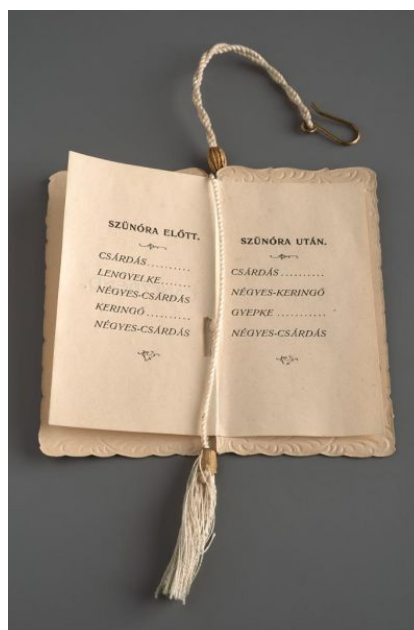 SZÜNÓRA ELŐTT.
CSÁRDÁS..........
LENGYELKE.......
NÉGYES-CSÁRDÁS
KERINGŐ..........
NÉGYES-CSÁRDÁS
SZÜNÓRA UTÁN.
CSÁRDÁS..........
NÉGYES-KERINGŐ
GYEPKE ...........
NÉGYES-CSÁRDÁS